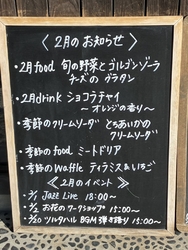 〈2月のお知らせ〉
・2月food 旬の野菜とゴルゴンゾーラ
チーズの グラタン
・2月drink ショコラチャイ
〜オレンジの香り〜
・季節のクリームソーダ とちあいかの
クリームソーダ
・季節のfood ミートドリア
・季節のwaffle ティラミス&いちご
〈2月のイベント〉
2/1 Jazz Live 18:00〜
お花のワークショップ 13:00〜
2/20 ツルタハル BGM弾き語り 15:00〜